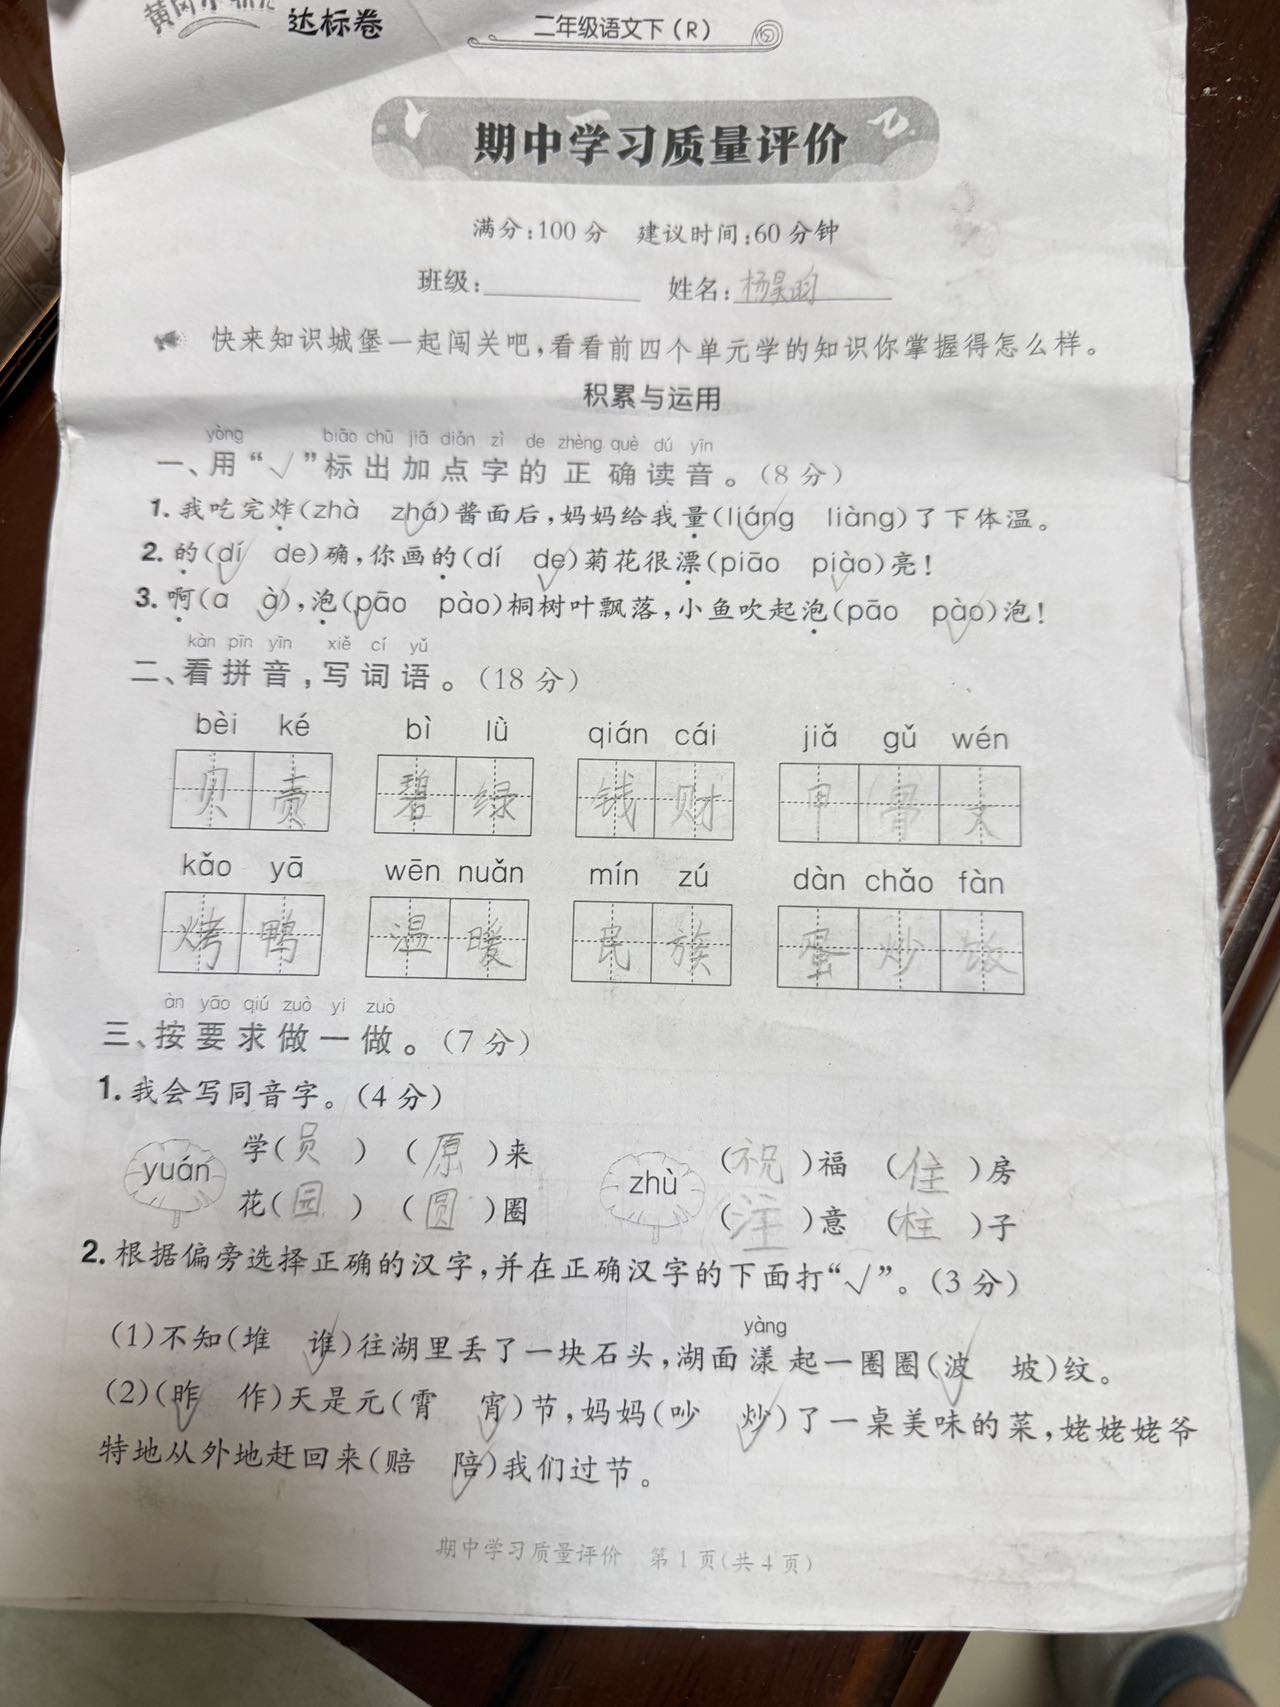 达标卷
二年级语文下(R)
期中学习质量评价
满分:100分 建议时间:60分钟
班级: 姓名:杨昊昀
快来知识城堡一起闯关吧,看看前四个单元学的知识你掌握得怎么样。
积累与运用
yòng biāo chū jiā diǎn zì de zhèng què dú yīn
一、用“√”标出加点字的正确读音。(8分)
1.我吃完炸(zhà zhá)酱面后,妈妈给我量(liáng liàng)了下体温。
2.的(dí de)确,你画的(dí de)菊花很漂(piāo piào)亮!
3.啊(a à),泡(pāo pào)桐树叶飘落,小鱼吹起泡(pāo pào)泡!
kàn pīn yīn xiě cí yǔ
二、看拼音,写词语。(18分)
bèi ké bì lǜ qián cái jiǎ gǔ wén
贝 碧绿 钱财 甲骨文
kǎo yā wēn nuǎn mín zú dàn chǎo fàn
烤鸭 温暖 民族 蛋炒饭
àn yāo qiú zuò yi zuò
三、按要求做一做。(7分)
1.我会写同音字。(4分)
学(员) (原)来 (祝)福 (住)房
yuán zhù
花(园) (圆)圈 (注)意 (柱)子
2.根据偏旁选择正确的汉字,并在正确汉字的下面打“√”。(3分)
yàng
(1)不知(堆 谁)往湖里丢了一块石头,湖面漾起一圈圈(波 坡)纹。
(2)(昨 作)天是元(霄 宵)节,妈妈(吵 炒)了一桌美味的菜,姥姥姥爷
特地从外地赶回来(赔 陪)我们过节。
期中学习质量评价 第1页(共4页)